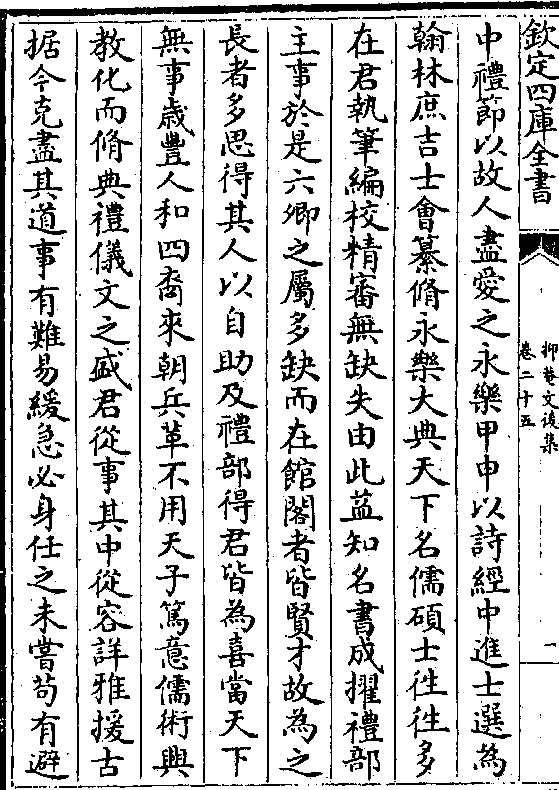 欽定四庫全書
抑菴文後集
卷二十五
一
中禮節以故人盡愛之永樂甲申以詩經中進士選為
翰林庶吉士會纂脩永樂大典天下名儒碩士徃徃多
在君執筆編校精審無缺失由此益知名書成擢禮部
主事於是六卿之屬多缺而在館閣者皆賢才故為之
長者多思得其人以自助及禮部得君皆為喜當天下
無事歲豐人和四裔來朝兵革不用天子篤意儒術興
教化而脩典禮儀文之盛君從事其中從容詳雅援古
据今克盡其道事有難易緩急必身任之未嘗苟有避